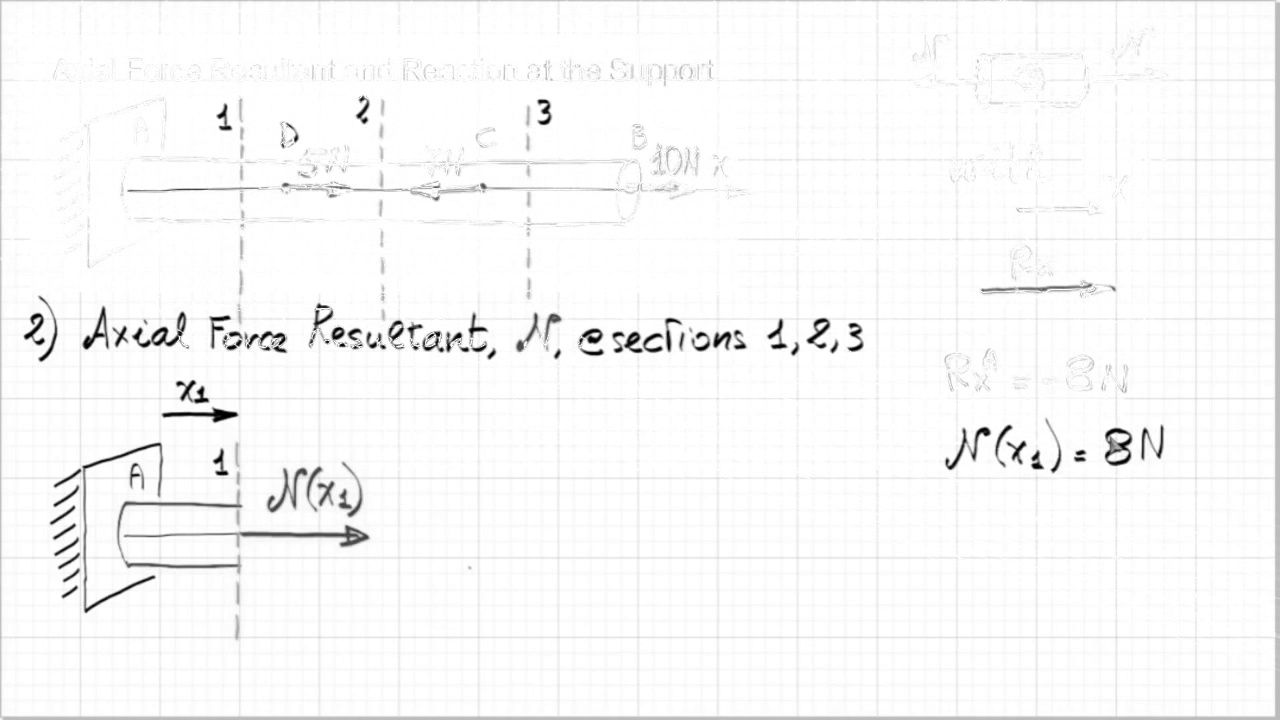 Axial Force Resultant and Reaction at the Support
N N
1 2 3
A D C B
5N 7N 10N x
with
x
Rx
2) Axial Force Resultant, N, @sections 1,2,3
RxA = -8N
x1
N(x1) = 8N
A 1 N(x1)